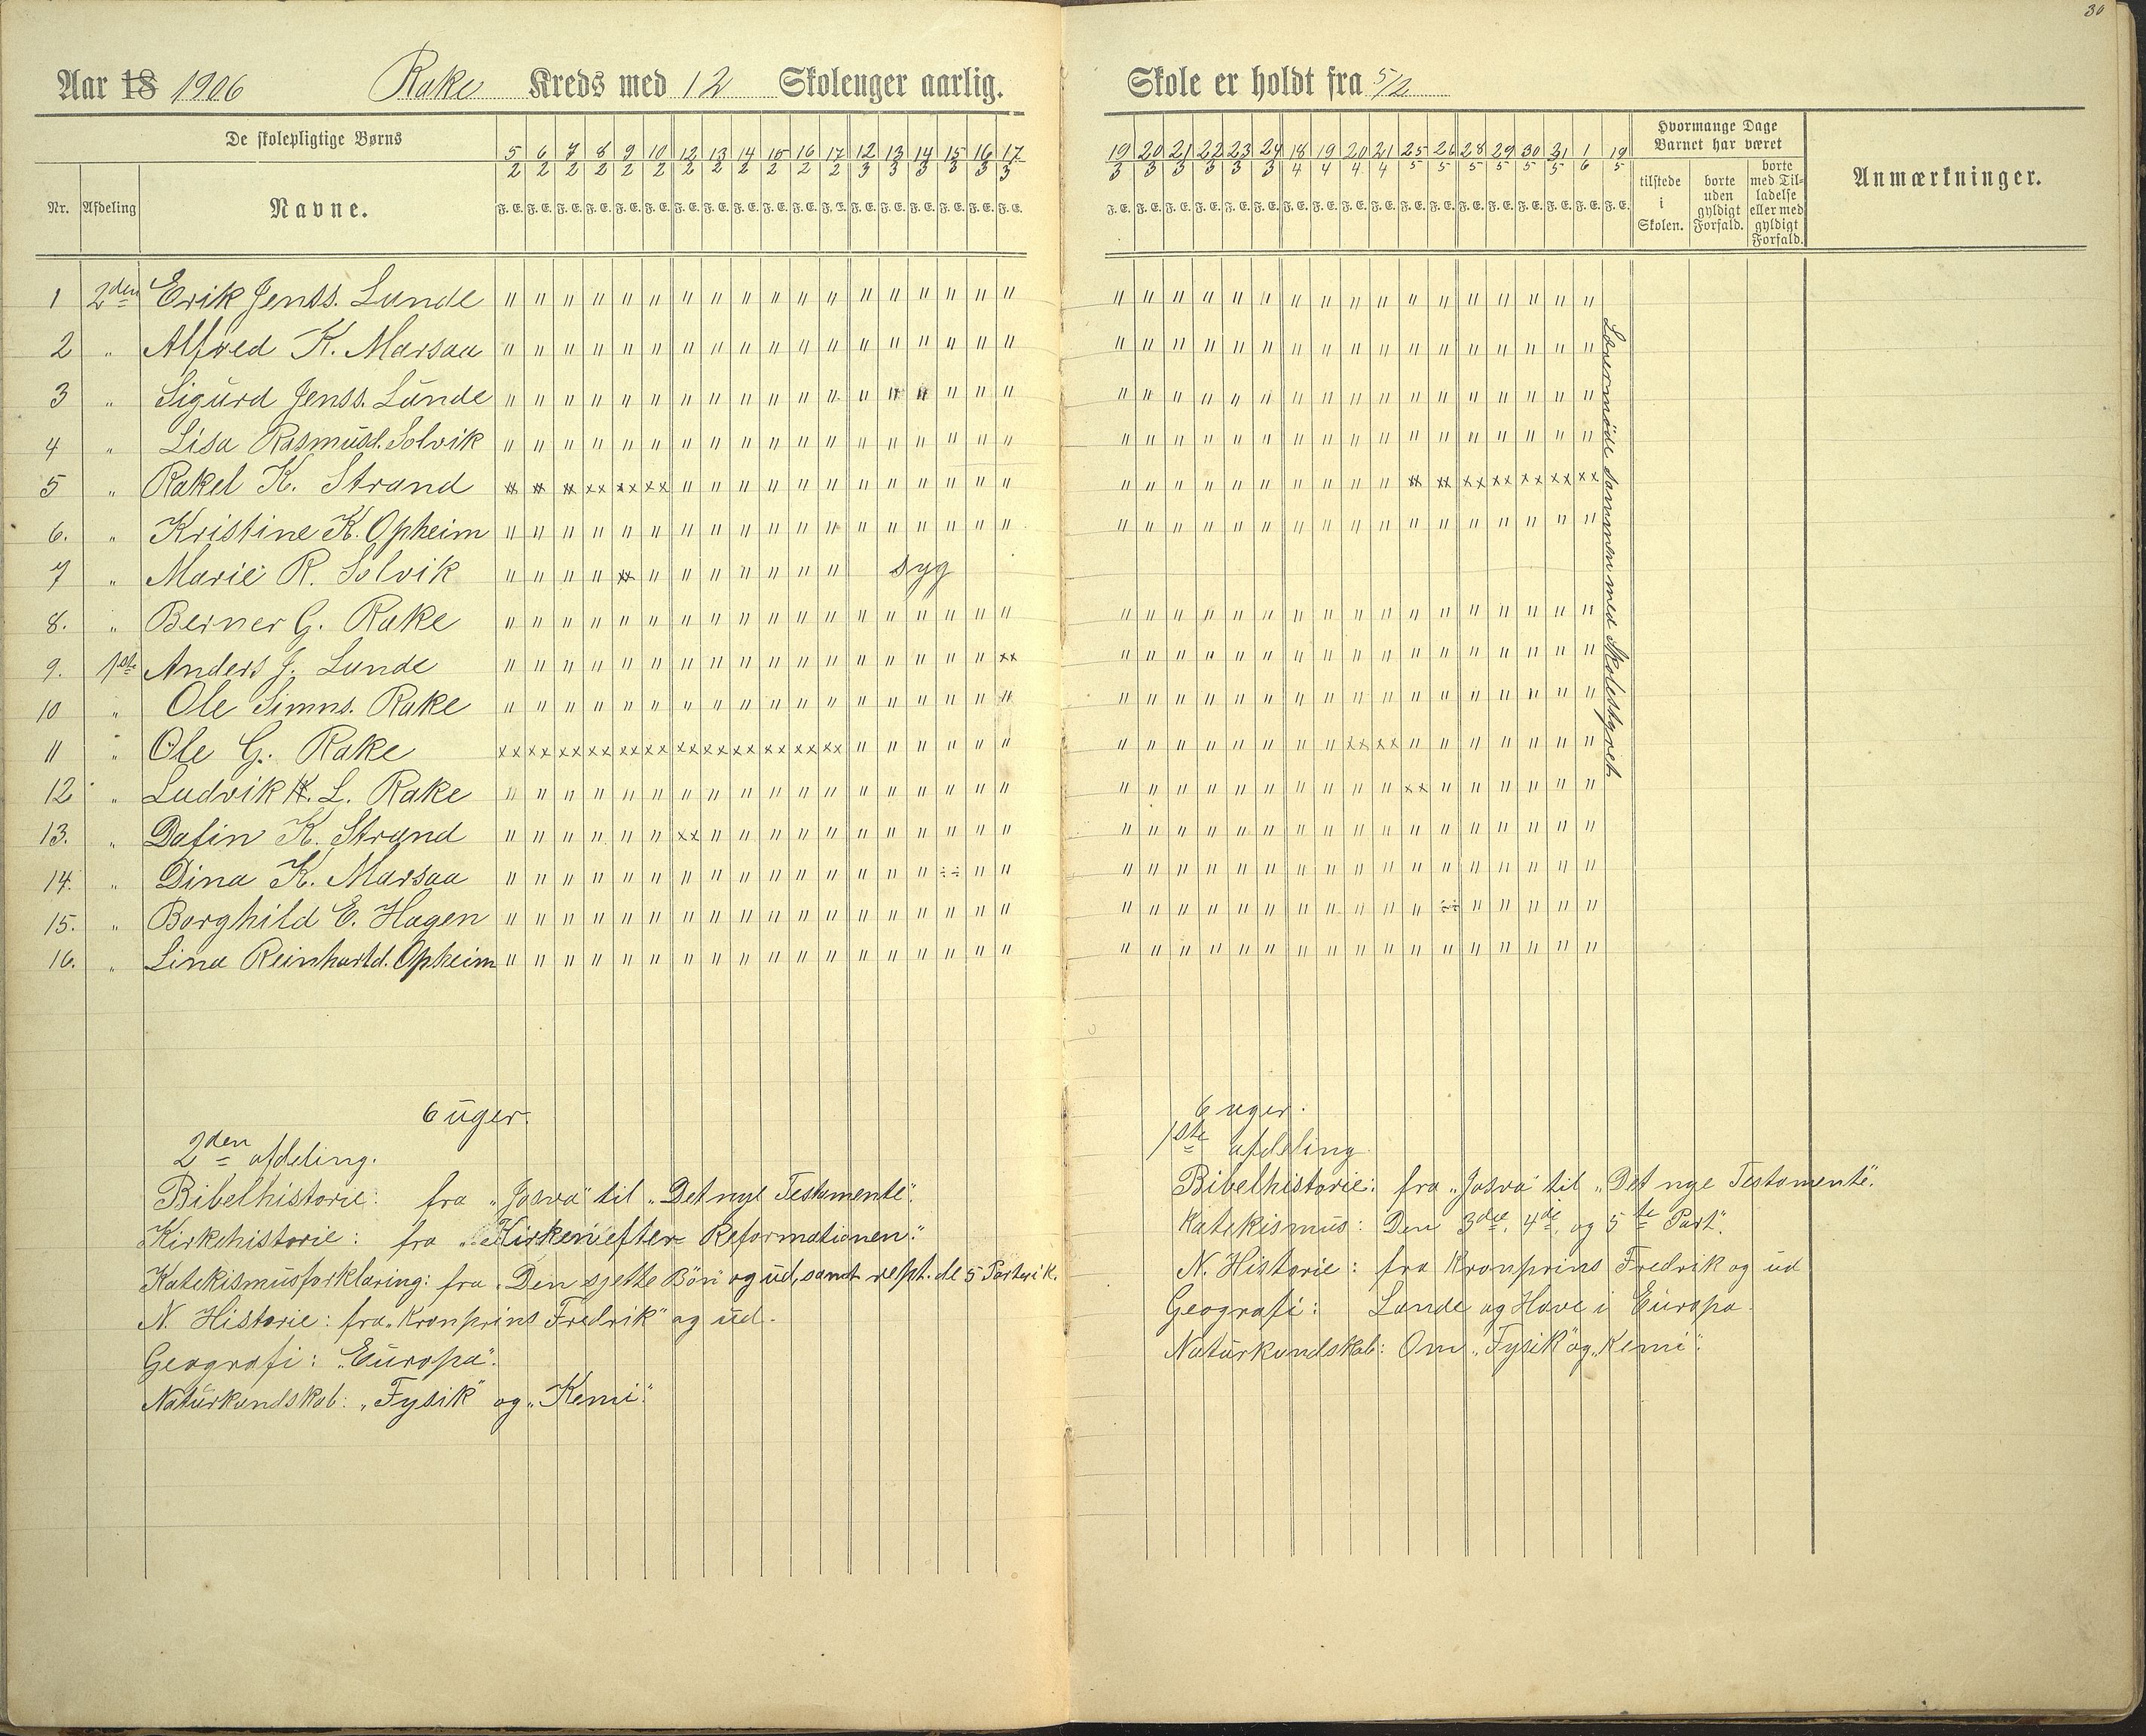 30
Aar 18 1906 Rake Kreds med 12 Skoleuger aarlig. Skole er holdt fra 5/2
De skolepligtige Børns
Nr. Afdeling Navne.
5/2 6/2 7/2 8/2 9/2 10/2 12/2 13/2 14/2 15/2 16/2 17/2 12/3 13/3 14/3 15/3 16/3 17/3
F. E. F. E. F. E. F. E. F. E. F. E. F. E. F. E. F. E. F. E. F. E. F. E. F. E. F. E. F. E. F. E. F. E. F. E.
19/3 20/3 21/3 22/3 23/3 24/3 18/4 19/4 20/4 21/4 25/5 26/5 28/5 29/5 30/5 31/5 1/6 19/5
F. E. F. E. F. E. F. E. F. E. F. E. F. E. F. E. F. E. F. E. F. E. F. E. F. E. F. E. F. E. F. E. F. E. F. E.
Hvormange Dage
Barnet har været
tilstede
i
Skolen.
borte
uden
gyldigt
Forfald.
borte
med Til-
ladelse
eller med
gyldigt
Forfald.
Anmærkninger.
1 2den Erik Jenss. Lunde
2 " Alfred K. Marsaa
3 " Sigurd Jenss. Lunde
4 " Lisa Rasmusd. Solvik
5 " Rakel K. Strand
6. " Kristine K. Opheim
7 " Marie R. Solvik syg
8. " Berner G. Rake
9. 1ste Anders J. Lunde
10 " Ole Simns. Rake
11 " Ole G. Rake
12 " Ludvik K. L. Rake
13. " Dafin K. Strand
14. " Dina K. Marsaa
15. " Borghild E. Hagen
16. " Lina Reinhartd. Opheim
Lærermøde sammen med Skolestyret
6 uger.
2den afdeling.
Bibelhistorie: fra „Josva" til „Det nye Testamente".
Kirkehistorie: fra „Kirken efter Reformationen."
Katekismusforklaring: fra „Den sjette Bøn" og ud, samt rept. de 5 Parter i K.
N. Historie: fra „Kronprins Fredrik" og ud.
Geografi: „Europa".
Naturkundskab: „Fysik" og „Kemi."
6 uger.
1ste afdeling
Bibelhistorie: fra „Josva" til „Det nye Testamente".
Katekismus: Den 3die, 4de, og 5te Part".
N. Historie: fra Kronprins Fredrik og ud
Geografi: Lande og Have i Europa.
Naturkundskab: Om „Fysik" og „Kemi".